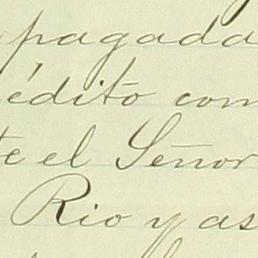 pagada
édito com
te el Señor
Rio y as